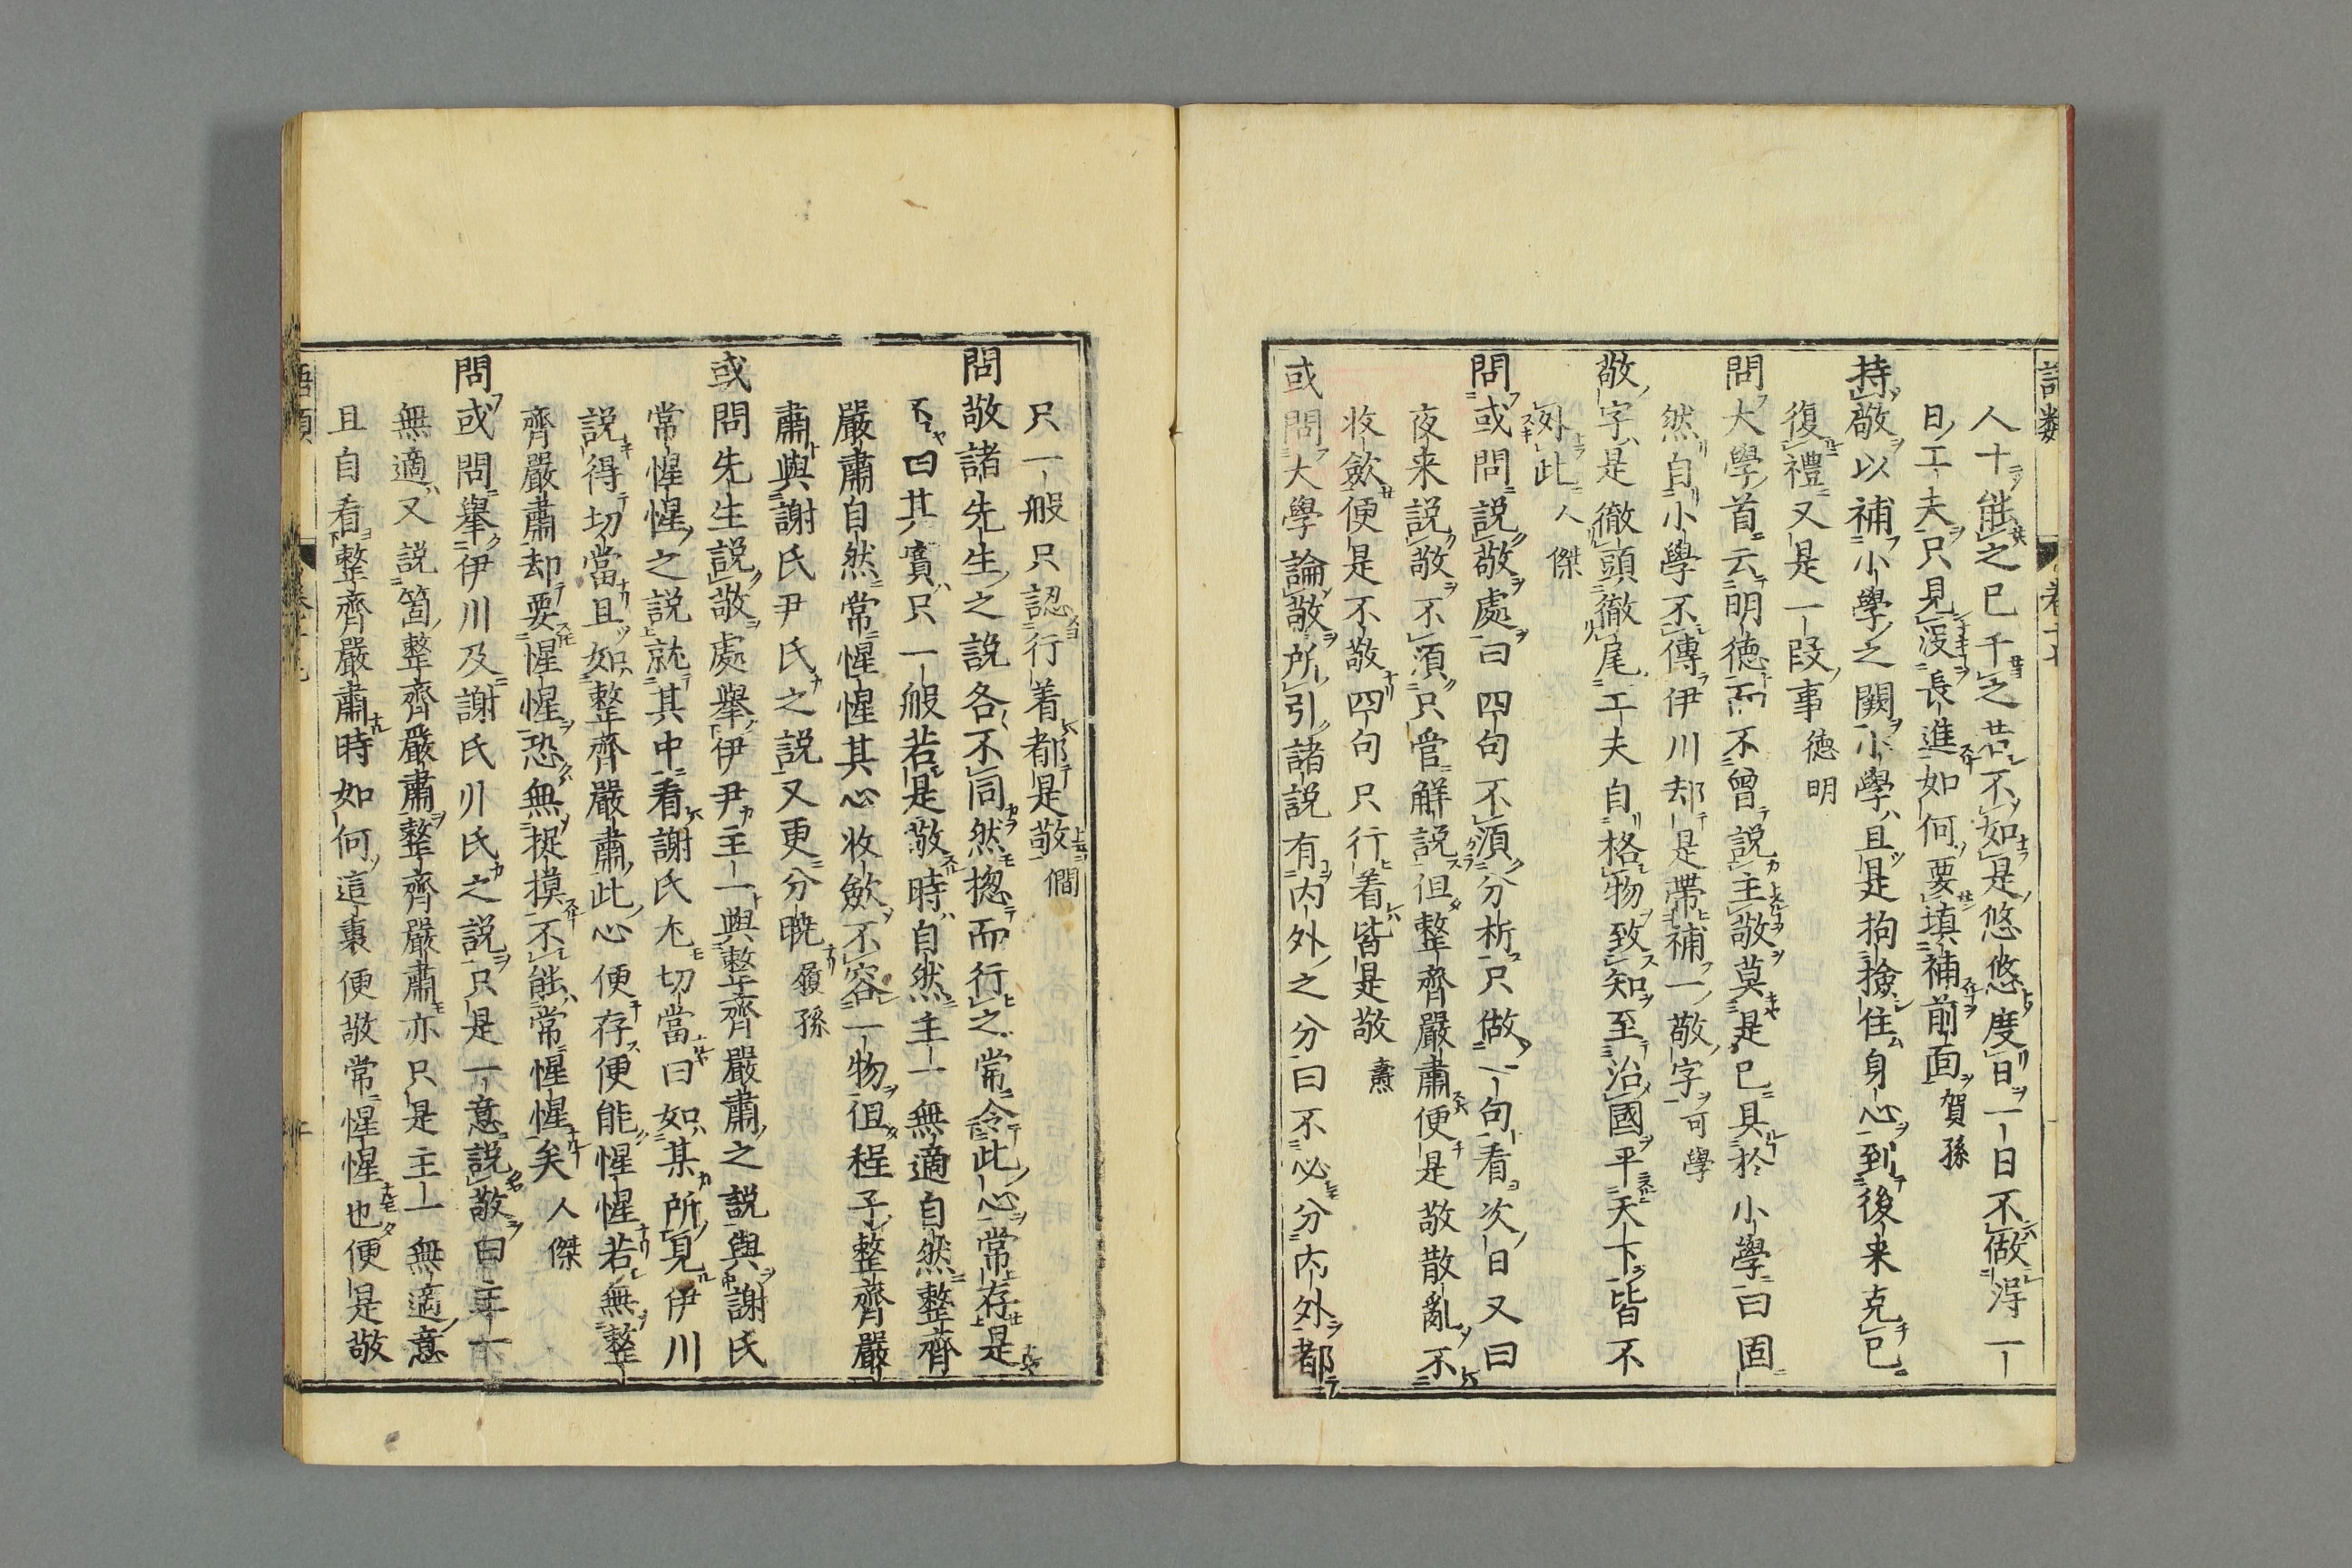 人十能之已千之苦不如是悠悠度日一日不做得一
日工夫只見沒長進如何要填補前面賀孫
持敬以補小學之闕小學且是拘撿住身心到後来克已
復禮又是一段事德明
問大學首云明德而不曾說主敬莫是已具於小學曰固
然自小學不傳伊川却是帶補一敬字可學
敬字是徹頭徹尾工夫自格物致知至治國平天下皆不
外此人傑
問或問說敬處曰四句不須分析只做一句看次日又曰
夜来說敬不須只管解說但整齊嚴肅便是敬散亂不
收斂便是不敬四句只行着皆是敬燾
或問大學論敬所引諸說有内外之分曰不必分内外都
只一般只認行着都是敬僩
問敬諸先生之說各不同然捴而行之常令此心常存是
否曰其實只一般若是敬時自然主一無適自然整齊
嚴肅自然常惺惺其心收斂不容一物但程子整齊嚴
肅與謝氏尹氏之說又更分曉履孫
或問先生說敬處舉伊尹主一與整齊嚴肅之說與謝氏
常惺惺之說就其中看謝氏尤切當曰如某所見伊川
說得切當且如整齊嚴肅此心便存便能惺惺若無整
齊嚴肅却要惺惺恐無捉摸不能常惺惺矣人傑
問或問舉伊川及謝氏尹氏之說只是一意說敬曰主一
無適又說箇整齊嚴肅整齊嚴肅亦只是主一無適意
且自看整齊嚴肅時如何這裏便敬常惺惺也便是敬